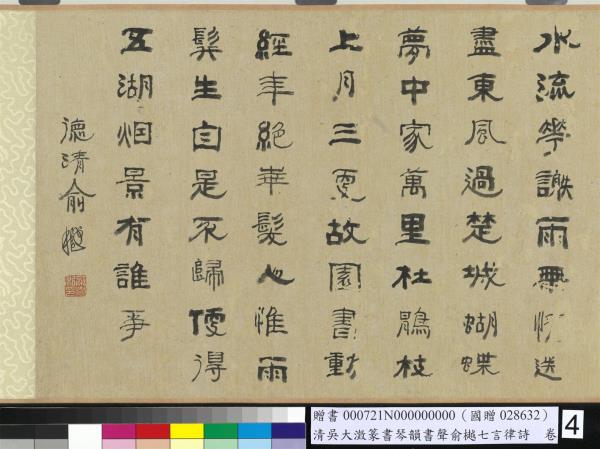 水流華謝兩無情送
盡東風過楚城蝴蝶
夢中家萬里杜鵑枝
上月三更故園書動
經年絕華髮心惟兩
鬢生自是不歸便得
五湖烟景有誰爭
德清俞樾
贈書 000721N000000000 (國贈 028632)
清吳大澂篆書琴韻書聲俞樾七言律詩 卷
4